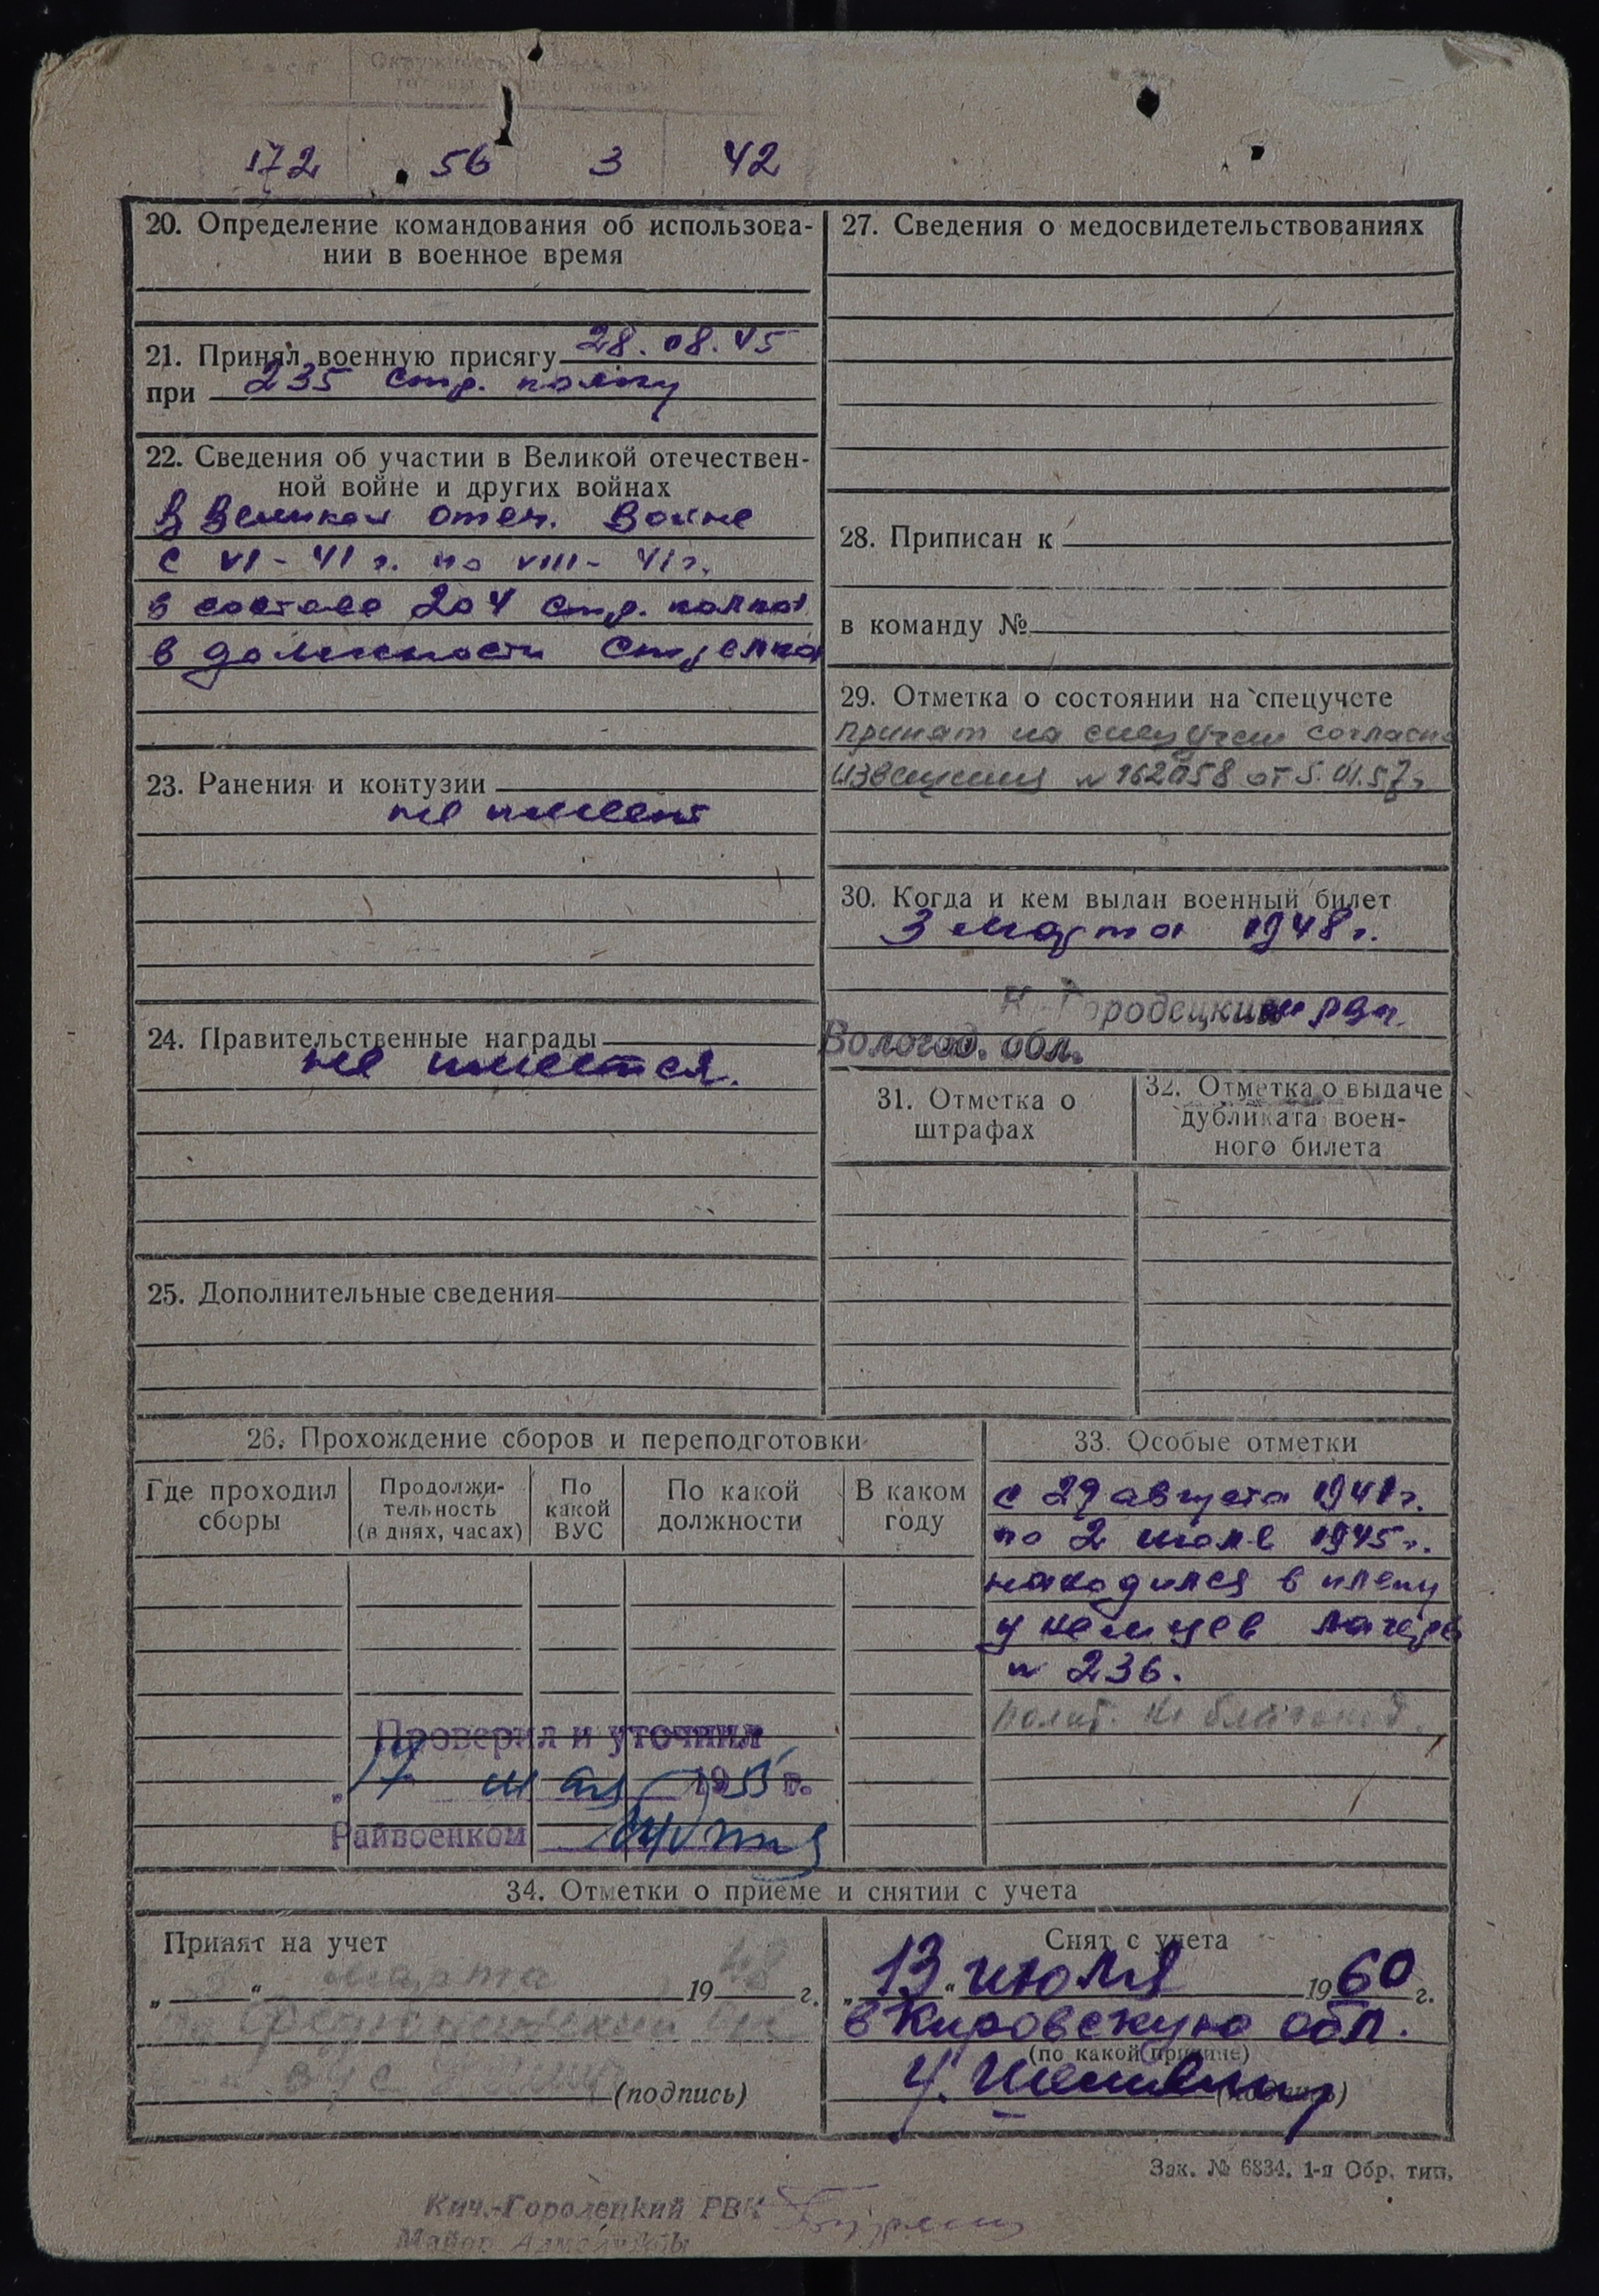 Окружность
172 56 3 42
20. Определение командования об использова-
нии в военное время
21. Принял военную присягу 28.08.45
при 235 стр. полку
22. Сведения об участии в Великой отечествен-
ной войне и других войнах
В Великой отеч. Войне
с VI-41 г. по VIII-41 г.
в составе 204 стр. полка
в должности стрелка
23. Ранения и контузии
не имеет
24. Правительственные награды
не имеется.
25. Дополнительные сведения
27. Сведения о медосвидетельствованиях
28. Приписан к
в команду №
29. Отметка о состоянии на спецучете
принят на спецучет согласно
извещения № 162058 от 5.01.57 г.
30. Когда и кем выдан военный билет
3 марта 1948 г.
К-Городецким рвк.
Вологод. обл.
31. Отметка о
штрафах
32. Отметка о выдаче
дубликата воен-
ного билета
26. Прохождение сборов и переподготовки
Где проходил
сборы
Продолжи-
тельность
(в днях, часах)
По
какой
ВУС
По какой
должности
В каком
году
Проверил и уточнил
17 мая 1955 г.
Райвоенком
33. Особые отметки
с 29 августа 1941 г.
по 2 июля 1945 г.
находился в плену
у немцев лагерь
№ 236.
полит. не благонад.
34. Отметки о приеме и снятии с учета
Принят на учет
„ 3 “ марта 1948 г.
(подпись)
Снят с учета
„ 13 “ июля 1960 г.
в Кировскую обл.
(по какой причине)
(подпись)
Зак. № 6834. 1-я Обр. тип.
Кич.-Городецкий РВК
Майор